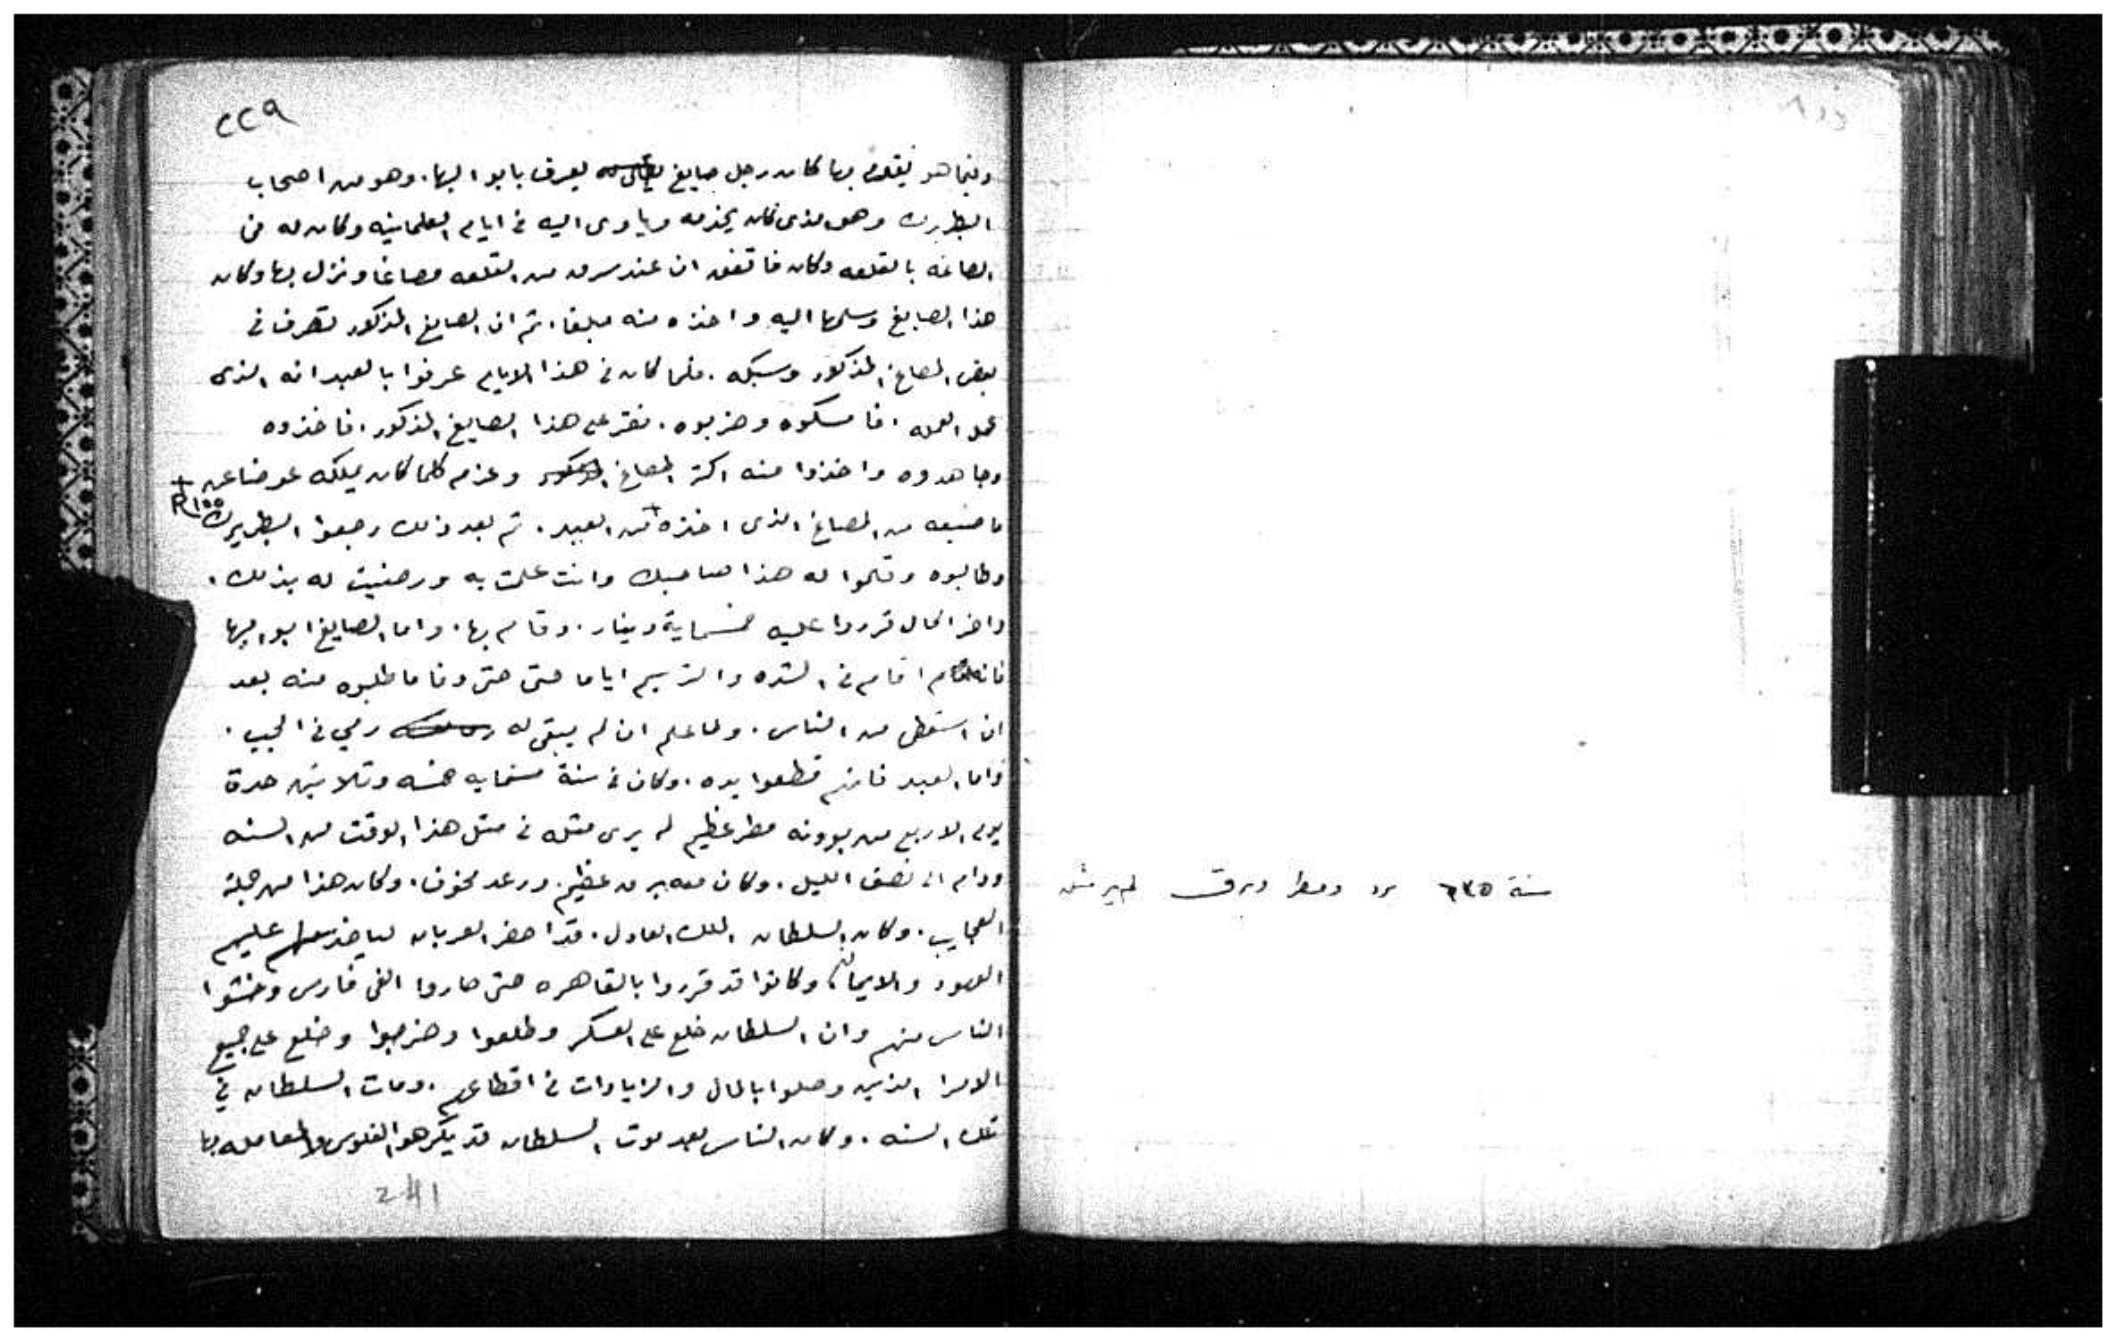 ٢٢٩
وفيما هو يقوم بها كان رجل صايغ يعرف بابو البها. وهو من اصحاب
البطريرك وهو الذى كان يخدمه وياوى اليه فى ايام العلمانيه وكان له فى
الصاغه بالقلعه وكان فاتفق ان عبد سرق من القلعه مصاغا ونزل بها وكان
هذا الصايغ وسلمها اليه واخذه منه مبلغا. ثم ان الصايغ المذكور تصرف فى
بعض المصاغ المذكور وسبكه. فلما كان فى هذا الايام عرفوا بالعبد انه الذى
عمل العمله. فامسكوه وضربوه. فقر على هذا الصايغ المذكور. فاخذوه
وجاهدوه واخذوا منه اكثر المصاغ المذكور وغرم كلما كان يملكه عوضا عن
ما ضيعه من المصاغ الذى اخذه + من العبد. ثم بعد ذلك رجعوا البطريرك
+ R 100
وطالبوه وقالوا له هذا صاحبك وانت علمت به ورضيت له بذلك.
واخر الحال قرروا عليه خمسماية دينار. وقام بها. واما الصايغ ابو البها
فانه اقام فى الشده والترسيم اياما حتى حتى وفا ما طلبوه منه بعد
ان استعطى من الناس. ولما علم ان لم يبقى له رمي فى الجب.
واما العبد فانهم قطعوا يده. وكان فى سنة ستمايه خمسه وتلاتين حدة
يوم الاربع من بوونه مطر عظيم لم يرى مثله فى مثل هذا الوقت من السنه
ودام الى نصف الليل. وكان معه برق عظيم. ورعد مخوف. وكان هذا من جملة
العجايب. وكان السلطان الملك العادل. قد احضر العربان لياخذ عليهم
العهود والايمان، وكانوا قد قرروا بالقاهره حتى صاروا الفى فارس وخشوا
الناس منهم وان السلطان خلع على العسكر وطلعوا وخرجوا وخلع على جميع
الامرا الذين وصلوا بالمال والزيادات فى اقطاعهم. ومات السلطان في
تلك السنه. وكان الناس بعد موت السلطان قد يكرهوا الفلوس والمعامله بها
241
سنة ٦٣٥ برد ومطر وبرق لم ير مثله